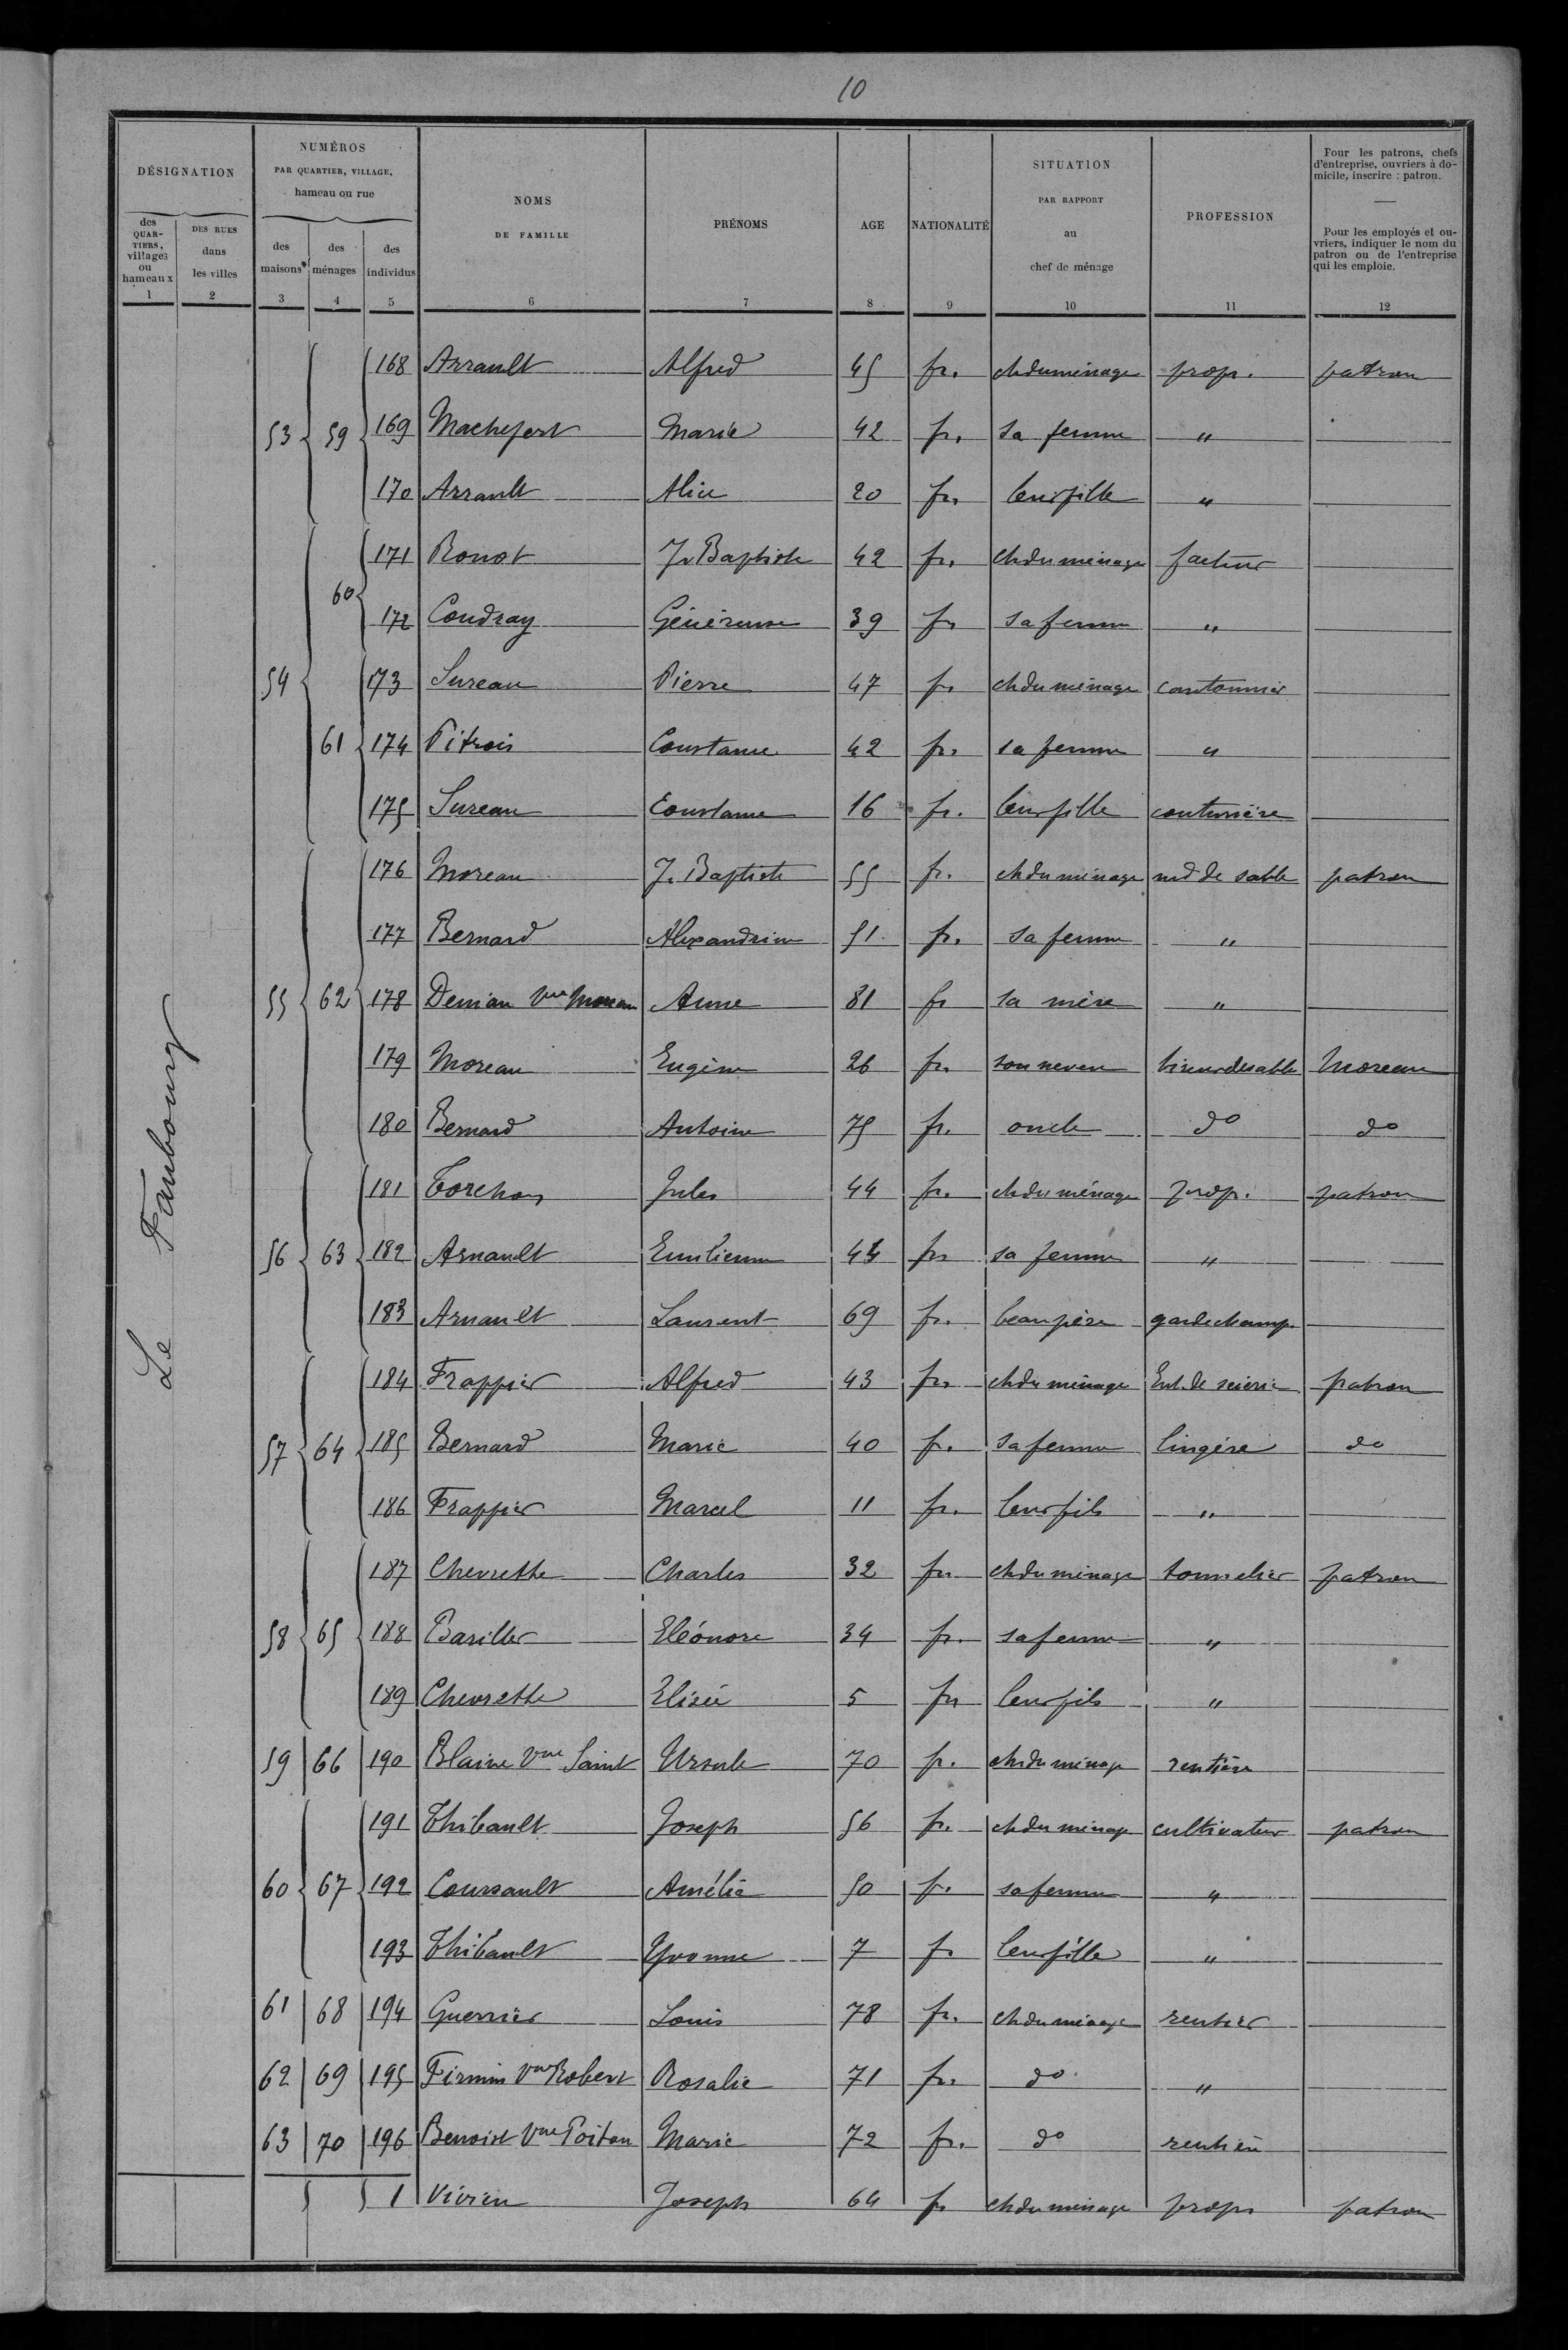 10
DÉSIGNATION
NUMÉROS
PAR QUARTIER, VILLAGE,
hameau ou rue
NOMS
DE FAMILLE
PRÉNOMS
AGE
NATIONALITÉ
SITUATION
PAR RAPPORT
au
chef de ménage
PROFESSION
Pour les patrons, chefs
d'entreprise, ouvriers à do-
micile, inscrire : patron.
Pour les employés et ou-
vriers, indiquer le nom du
patron ou de l'entreprise
qui les emploie.
des
QUAR-
TIERS,
villages
ou
hameaux
DES RUES
dans
les villes
des
maisons
des
ménages
des
individus
1 2 3 4 5 6 7 8 9 10 11 12
Le Faubourg
168 Arrault Alfred 45 fr. ch du ménage prop. patron
53 59 169 Machefert Marie 42 fr. sa femme "
170 Arrault Alice 20 fr. leur fille "
60 171 Ronot J. Baptiste 42 fr. ch du ménage facteur
172 Coudray Généreuse 39 fr sa femme "
54 173 Sureau Pierre 47 fr ch du ménage cantonnier
61 174 Pitrois Constance 42 fr. sa femme "
175 Sureau Constance 16 fr. leur fille couturière
176 Moreau J. Baptiste 55 fr. ch du ménage md de sable patron
177 Bernard Alexandrine 51 fr. sa femme "
55 62 178 Veuve Moreau Anne 81 fr sa mère "
179 Moreau Eugène 26 fr. son neveu tireur de sable Moreau
180 Bernard Antoine 75 fr. oncle do do
181 Torchon Jules 44 fr. ch du ménage prop. patron
56 63 182 Arnault Emilienne 44 fr sa femme "
183 Arnault Laurent 69 fr. beau père garde champ.
184 Frappier Alfred 43 fr. ch du ménage Ent. de scierie patron
57 64 185 Bernard Marie 40 fr. sa femme lingère do
186 Frappier Marcel 11 fr. leur fils "
187 Chevrette Charles 32 fr. ch du ménage tonnelier patron
58 65 188 Bariller Eléonore 34 fr. sa femme "
189 Chevrette Elisée 5 fr leur fils "
59 66 190 Blaive Vve Saint Ursule 70 fr. ch du ménage rentière
191 Thibault Joseph 56 fr. ch du ménage cultivateur patron
60 67 192 Coursault Amélie 50 fr. sa femme "
193 Thibault Yvonne 7 fr leur fille "
61 68 194 Guerrier Louis 78 fr. ch du ménage rentier
62 69 195 Firmin Vve Robert Rosalie 71 fr. do "
63 70 196 Benoist Vve Poitou Marie 72 fr. do rentière
1 Vivien Joseph 64 fr ch du ménage prop. patron